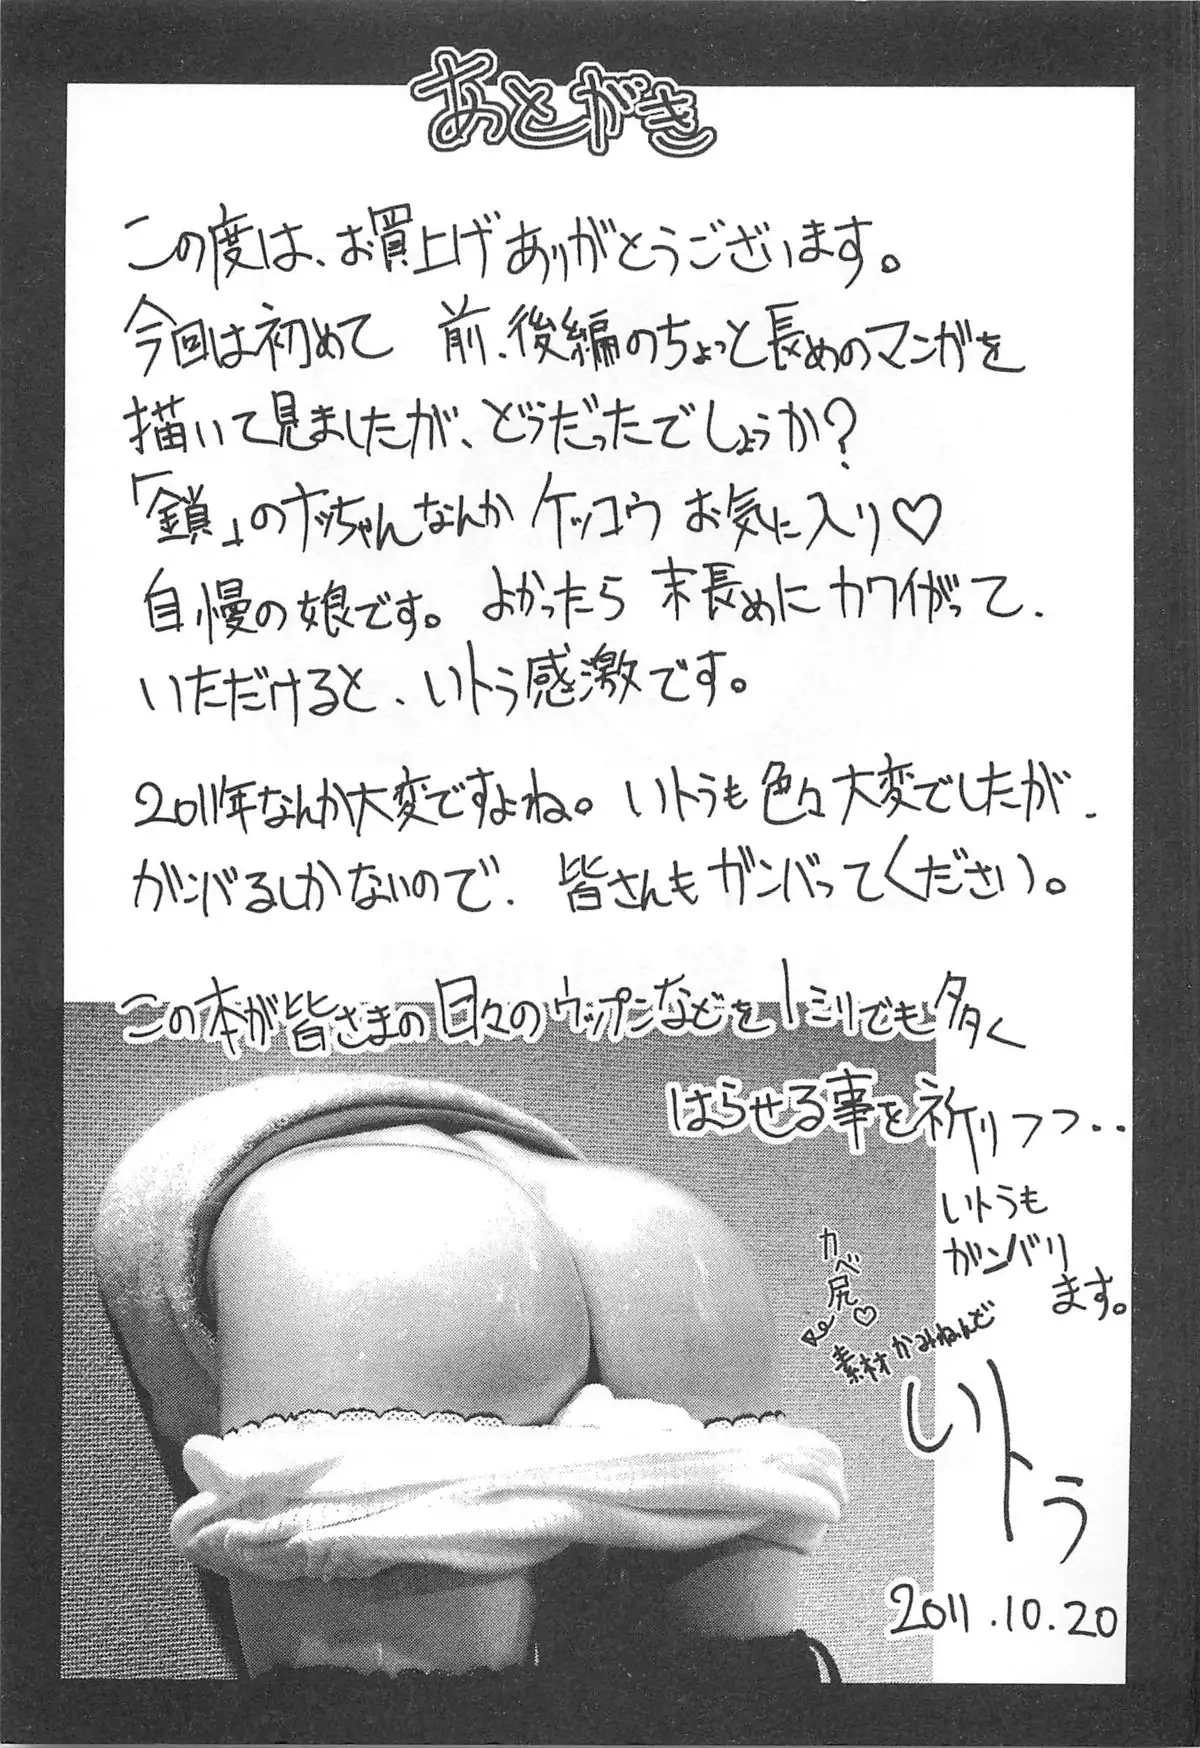 あとがき
この度は、お買上げありがとうございます。
今回は初めて 前、後編のちょっと長めのマンガを
描いて見ましたが、どうだったでしょうか?
「鎖」のナッちゃんなんかケッコウお気に入り♡
自慢の娘です。よかったら 末長めにカワイがって、
いただけると、いトう感激です。
2011年なんか大変ですよね。いトうも色々大変でしたが、
ガンバるしかないので、皆さんもガンバってください。
この本が皆さまの日々のウップンなどを1ミリでも多く
はらせる事を祈りつつ..
いトうも
ガンバリ
ます。
カベ尻♡
素材かみねんど
いトう
2011.10.20